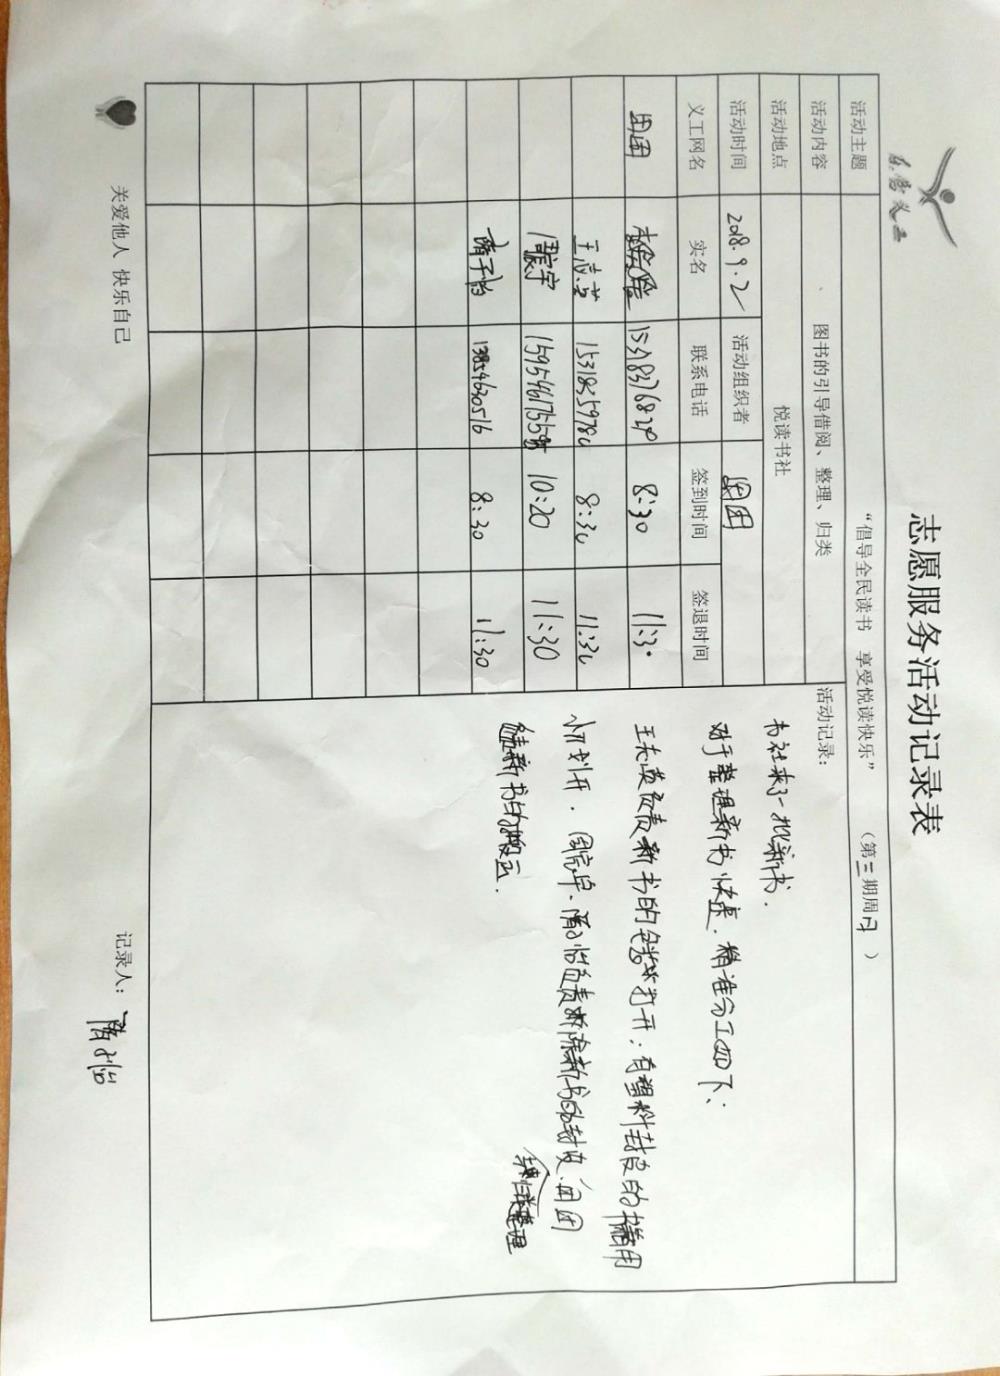 志愿服务活动记录表
活动主题 “倡导全民读书 享受悦读快乐” （第三期周日）
活动内容 图书的引导借阅、整理、归类 活动记录：
活动地点 悦读书社
活动时间 2018.9.2 活动组织者 团团
义工网名 实名 联系电话 签到时间 签退时间
团团 8:30 11:30
王志英 8:30 11:30
周宸宇 10:20 11:30
隋子怡 13854630516 8:30 11:30
书社来了一批新书.
对于整理新书快速、精准分工如下：
王志英负责新书的包装打开；有塑料封皮的
小刀划开. 隋子怡负责拆除新书的封皮、团团
新书的搬运.
归类整理
关爱他人 快乐自己
记录人：隋子怡